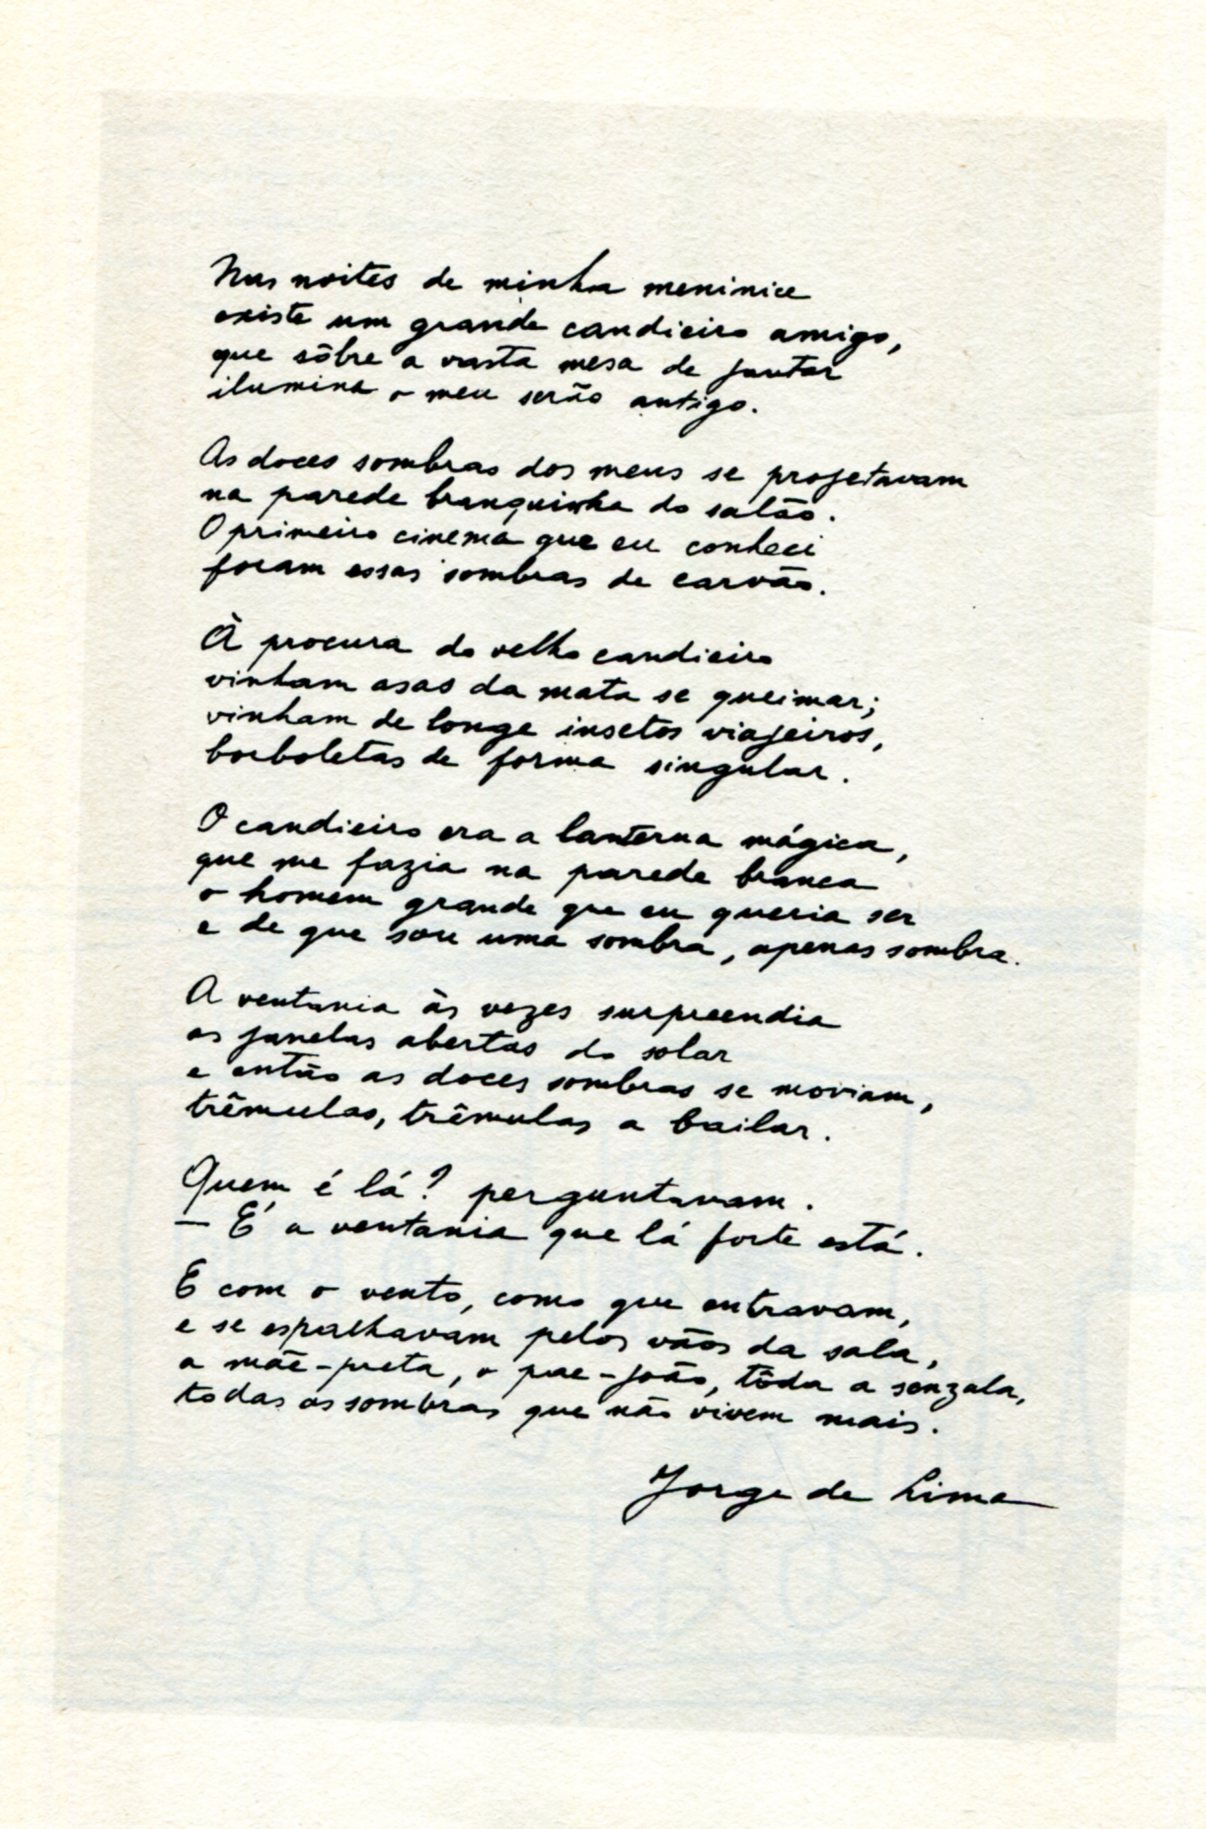 Nas noites de minha meninice
existe um grande candieiro amigo,
que sôbre a vasta mesa de jantar
ilumina o meu serão antigo.
As doces sombras dos meus se projetavam
na parede branquinha do salão.
O primeiro cinema que eu conheci
foram essas sombras de carvão.
À procura do velho candieiro
vinham asas da mata se queimar;
vinham de longe insetos viajeiros,
borboletas de forma singular.
O candieiro era a lanterna mágica,
que me fazia na parede branca
o homem grande que eu queria ser
e de que sou uma sombra, apenas sombra.
A ventania às vezes surpreendia
as janelas abertas do solar
e então as doces sombras se moviam,
trêmulas, trêmulas a bailar.
Quem é lá? perguntavam.
— É a ventania que lá forte está.
E com o vento, como que entravam,
e se espalhavam pelos vãos da sala,
a mãe-preta, o pae-joão, tôda a senzala,
todas as sombras que não vivem mais.
Jorge de Lima